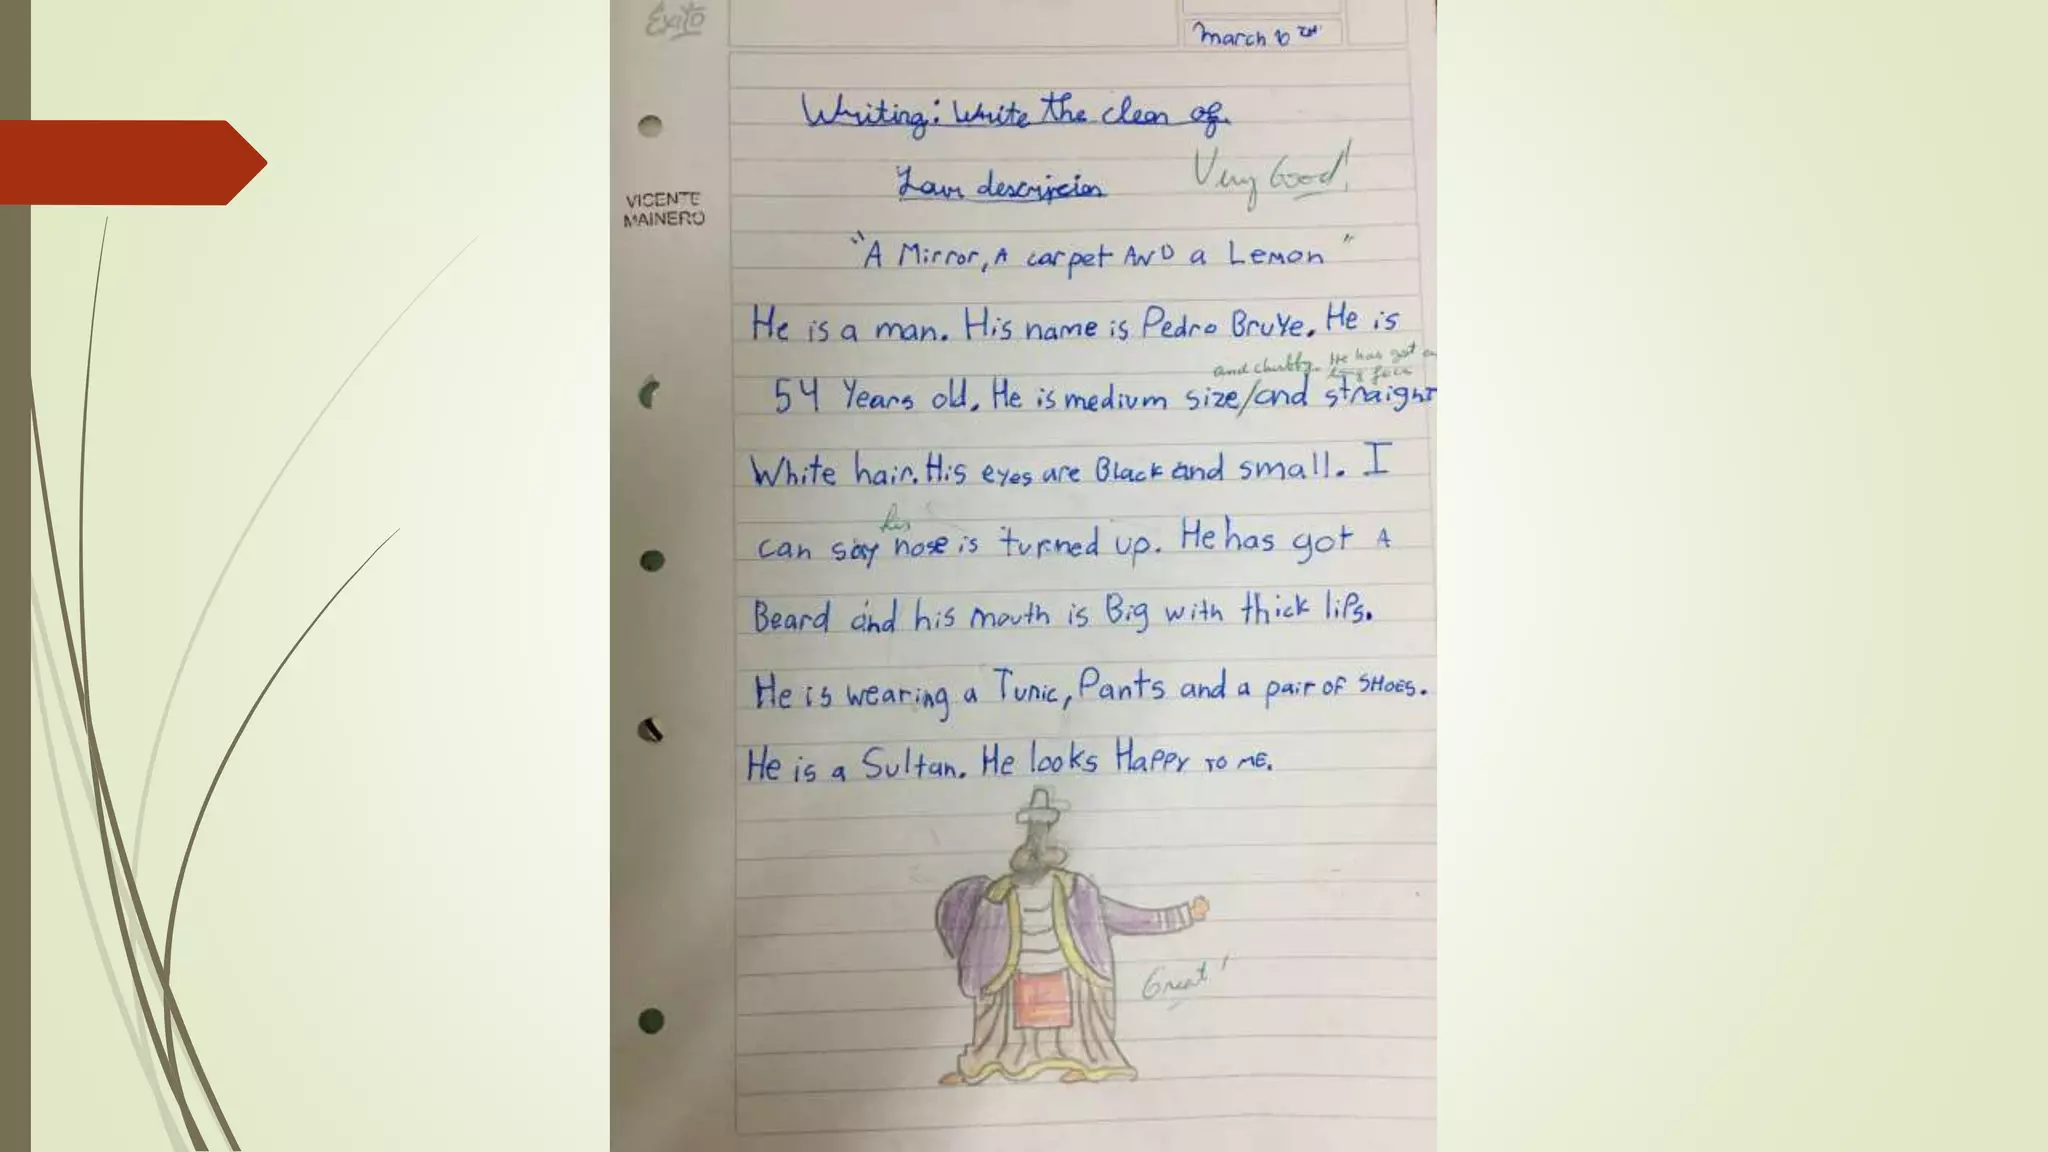 Éxito
March 10TH
Writing: Write the clean of
Your descripcion
Very Good!
VICENTE
MAINERO
"A Mirror, A carpet AND a Lemon"
He is a man. His name is Pedro Bruye. He is
and chubby. He has got
long face
54 Years old. He is medium size/and straight
White hair. His eyes are Black and small. I
his
can say nose is turned up. He has got A
Beard and his mouth is Big with thick lips.
He is wearing a Tunic, Pants and a pair of SHOES.
He is a Sultan. He looks Happy TO ME.
Great!